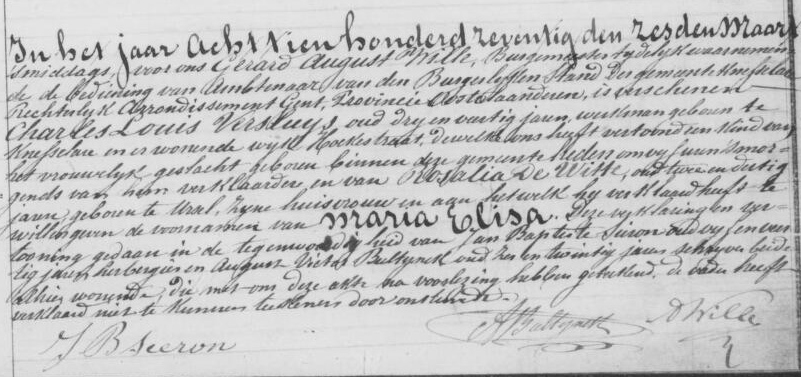 In het jaar achttien honderd zeventig den zesden Maart
smiddags, voor ons Gerard August Wille, Burgemeester tydelyk waarnemen
de de bediening van Ambtenaar van den Burgerlyken Stand der gemeente Knesselare
Rechterlyk Arrondissement Gent, Provincie Oostvlaanderen, is verschenen
Charles Louis Versluys, oud dry en vertig jaren, werkman geboren te
Knesselare en er wonende wyk Hoekestraat, dewelke ons heeft vertoond een Kind van
het vrouwelyk geslacht geboren binnen deze gemeente heden om vyf uren smor-
gends van hem verklaarder en van Rosalia De Witte, oud twee en dertig
jaren, geboren te Ursel, zyne huisvrouw en aan hetwelk hy verklaard heeft te
willen geven de voornamen van Maria Elisa. Deze verklaring en ver-
tooning gedaan in de tegenwoordigheid van Jan Baptiste Seron oud vyf en veer
tig jaren, herbergier en August Victor Baltynck oud zes en twintig jaren schryver beide
alhier wonende, die met ons deze akte na voorlezing hebben geteekend, de vader heeft
verklaard niet te kunnen teekenen door onkunde.
J B Seeron A Baltynck A Wille